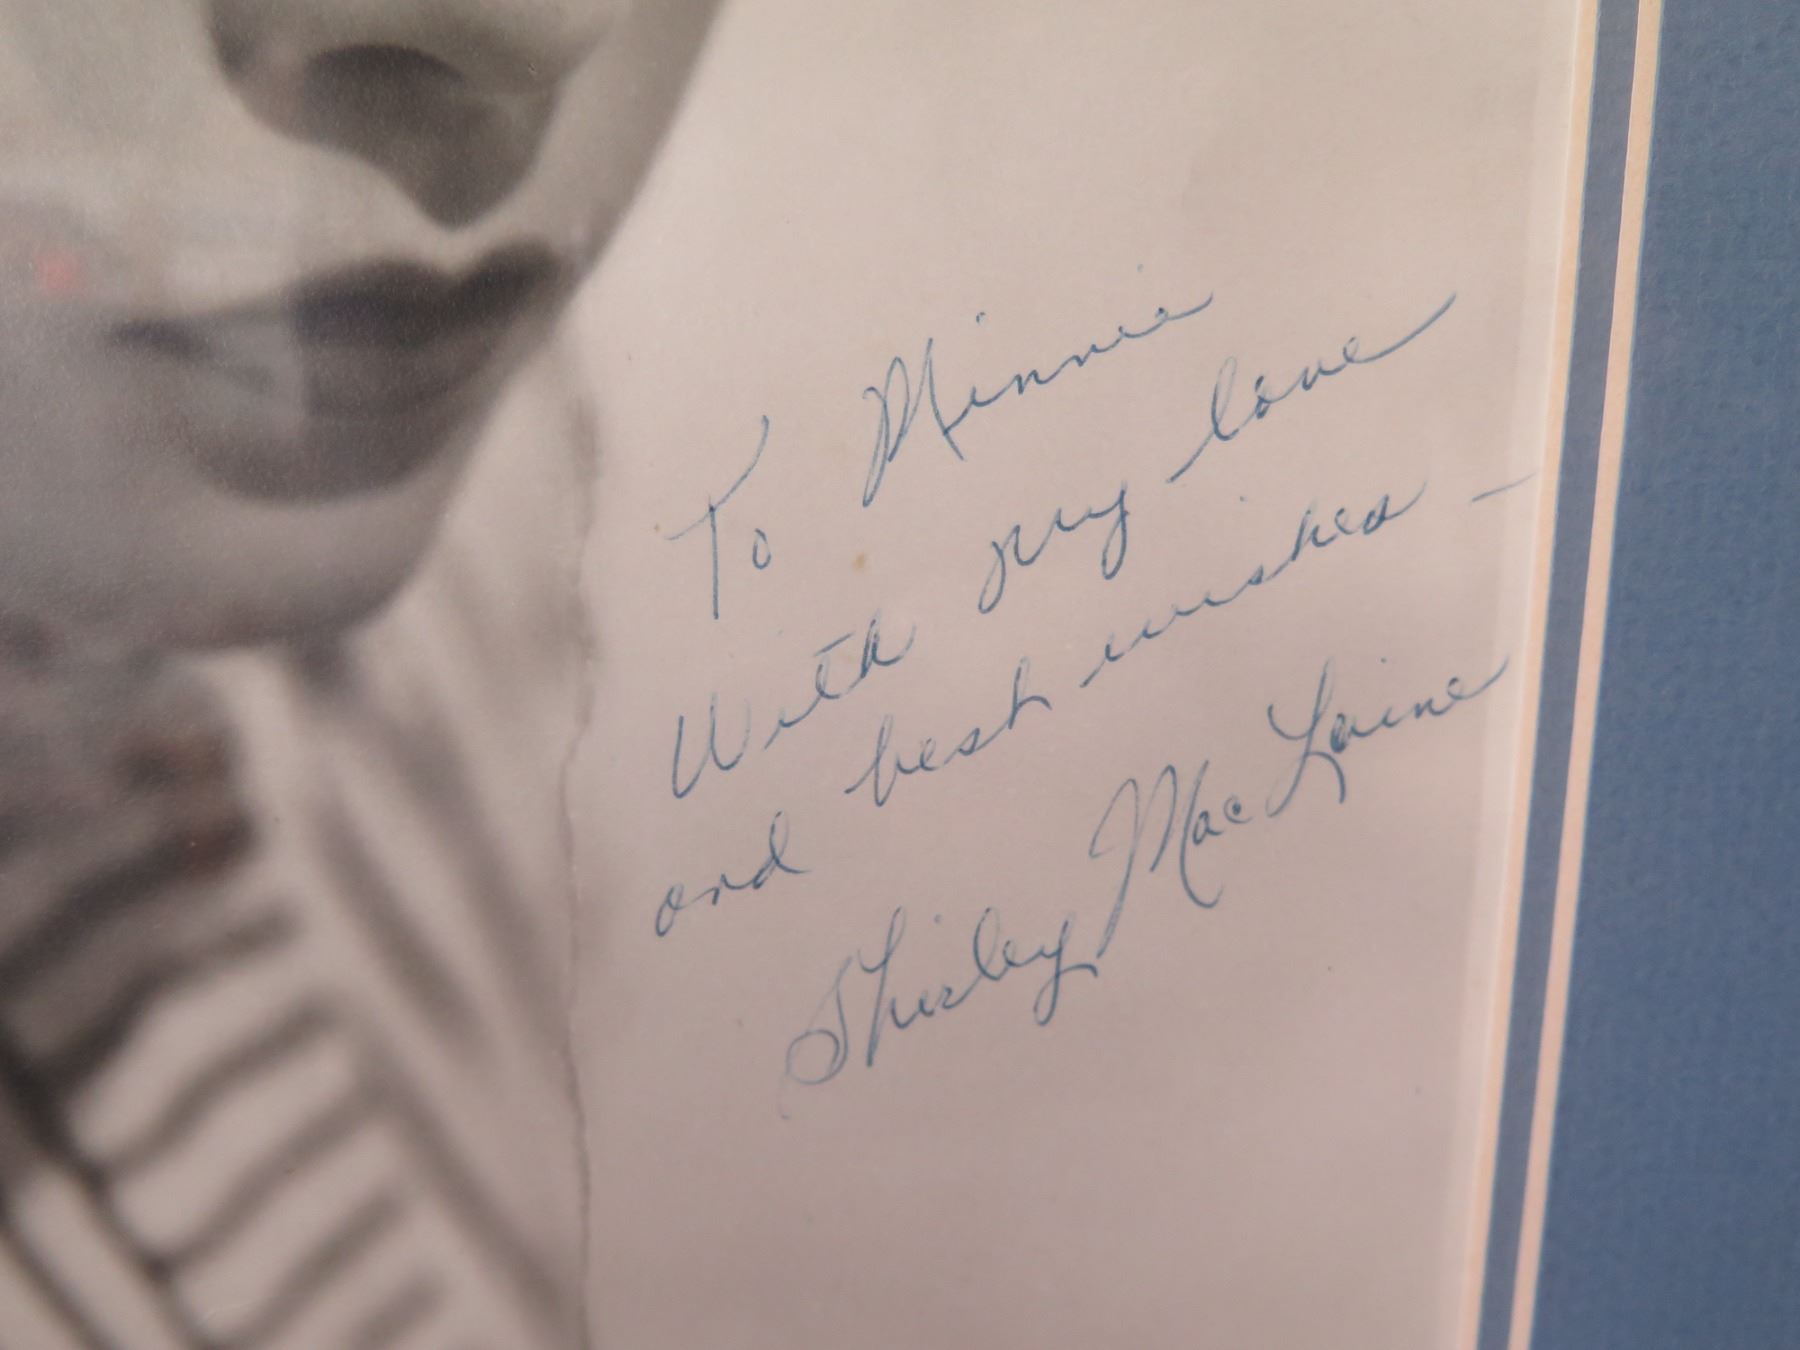 To Minnie
With my love
and best wishes —
Shirley MacLaine